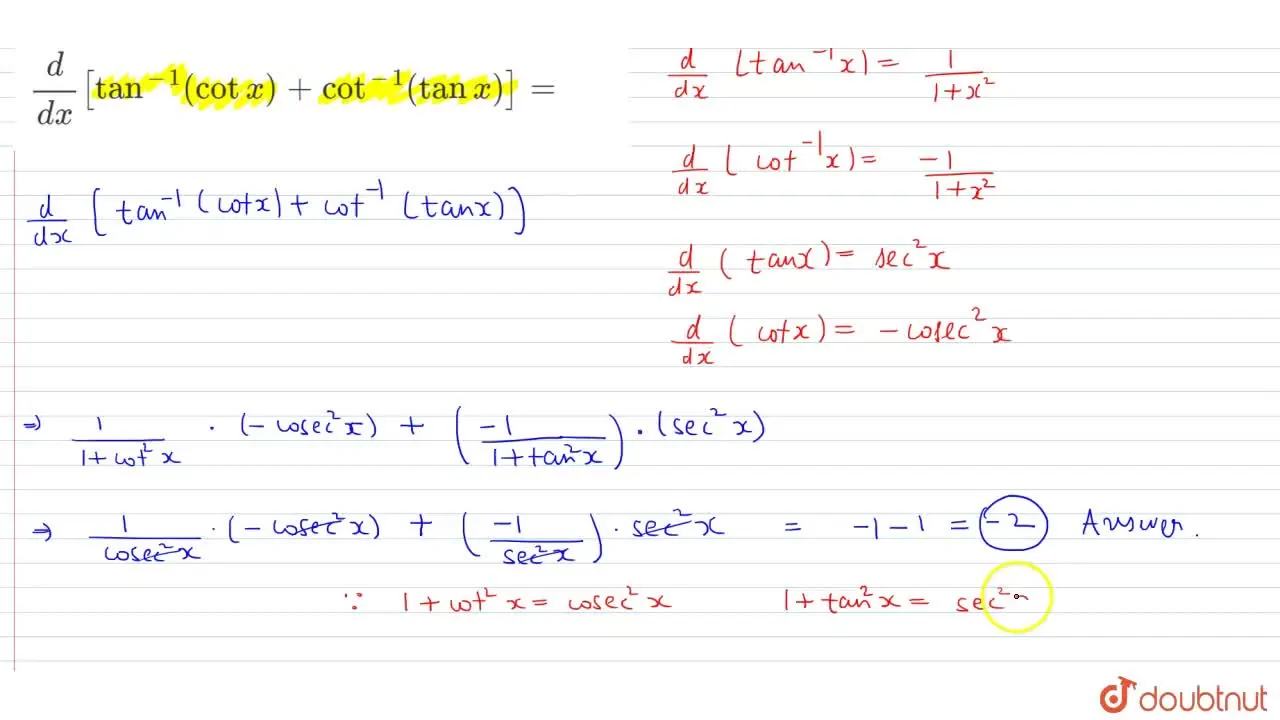 d/dx [tan⁻¹(cot x) + cot⁻¹(tan x)] =
d/dx (tan⁻¹x) = 1/(1+x²)
d/dx (cot⁻¹x) = -1/(1+x²)
d/dx [tan⁻¹(cotx) + cot⁻¹(tanx)]
d/dx (tanx) = sec²x
d/dx (cotx) = -cosec²x
⇒ 1/(1+cot²x) · (-cosec²x) + (-1/(1+tan²x)) · (sec²x)
⇒ 1/cosec²x · (-cosec²x) + (-1/sec²x) · sec²x = -1-1 = -2 Answer.
∵ 1+cot²x = cosec²x 1+tan²x = sec²
doubtnut